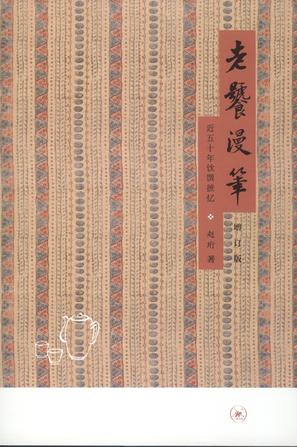 老饕漫筆
增订版
近五十年饮馔摭忆
赵珩 著